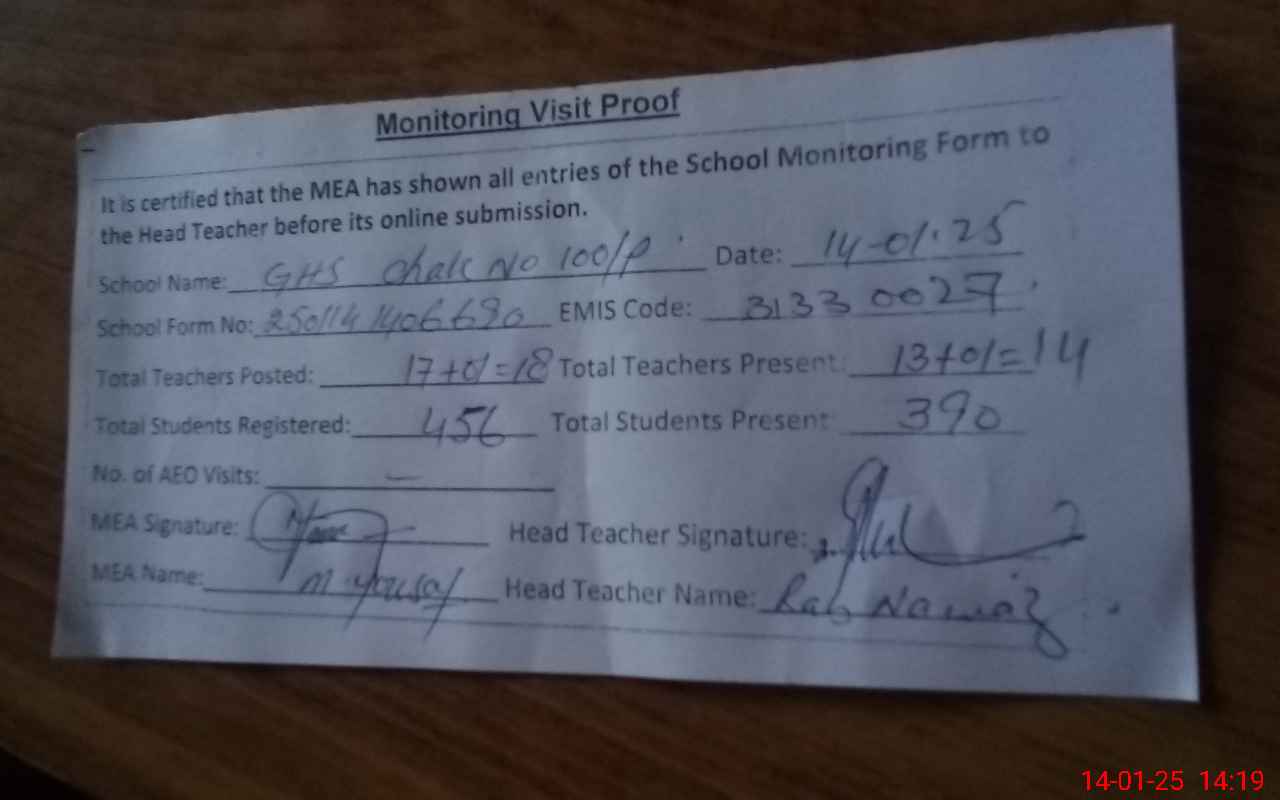 Monitoring Visit Proof
It is certified that the MEA has shown all entries of the School Monitoring Form to
the Head Teacher before its online submission.
School Name: GHS Chak No 100/P Date: 14-01-25
School Form No: 250114 1406690 EMIS Code: 31330027
Total Teachers Posted: 17+01=18 Total Teachers Present: 13+01=14
Total Students Registered: 456 Total Students Present: 390
No. of AEO Visits: —
MEA Signature: Head Teacher Signature:
MEA Name: M. Yousaf Head Teacher Name: Rab Nawaz
14-01-25 14:19